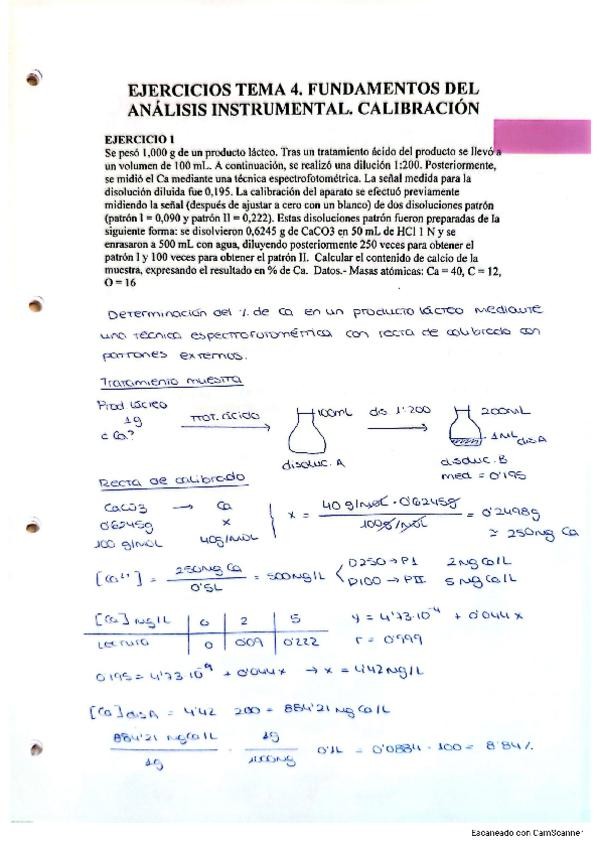 EJERCICIOS TEMA 4. FUNDAMENTOS DEL
ANÁLISIS INSTRUMENTAL. CALIBRACIÓN
EJERCICIO 1
Se pesó 1,000 g de un producto lácteo. Tras un tratamiento ácido del producto se llevó a
un volumen de 100 mL. A continuación, se realizó una dilución 1:200. Posteriormente,
se midió el Ca mediante una técnica espectrofotométrica. La señal medida para la
disolución diluida fue 0,195. La calibración del aparato se efectuó previamente
midiendo la señal (después de ajustar a cero con un blanco) de dos disoluciones patrón
(patrón I = 0,090 y patrón II = 0,222). Estas disoluciones patrón fueron preparadas de la
siguiente forma: se disolvieron 0,6245 g de CaCO3 en 50 mL de HCl 1 N y se
enrasaron a 500 mL con agua, diluyendo posteriormente 250 veces para obtener el
patrón I y 100 veces para obtener el patrón II. Calcular el contenido de calcio de la
muestra, expresando el resultado en % de Ca. Datos.- Masas atómicas: Ca = 40, C = 12,
O = 16
Determinación del % de Ca en un producto lácteo mediante
una técnica espectrofotométrica con recta de calibrado con
patrones externos.
Tratamiento muestra
Prod lácteo
1g
¿Ca?
trat. ácido
100mL
disoluc. A
dis 1:200
200mL
1mL disA
disoluc. B
med = 0'195
Recta de calibrado
CaCO3 → Ca
0'6245g x
100 g/mol 40g/mol
x = 40 g/mol · 0'6245g / 100g/mol = 0'2498g
≈ 250mg Ca
[Ca²⁺] = 250mg Ca / 0'5L = 500mg/L
D250 → PI 2mg Ca/L
D100 → PII 5 mg Ca/L
[Ca] mg/L 0 2 5
Lectura 0 0'09 0'222
y = 4'73·10⁻⁴ + 0'044x
r = 0'999
0'195 = 4'73·10⁻⁴ + 0'044x → x = 4'42mg/L
[Ca] disA = 4'42 200 = 884'21 mg Ca/L
884'21 mg Ca/L / 1g · 1g / 1000mg 0'1L = 0'0884 · 100 = 8'84%
Escaneado con CamScanner